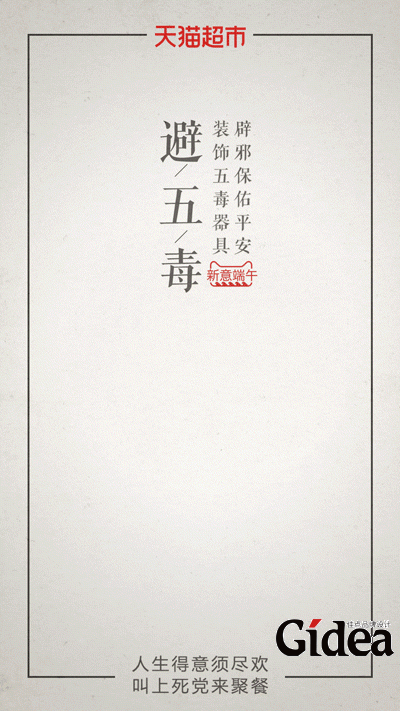 天猫超市
避/五/毒
辟邪保佑平安
装饰五毒器具
新意端午
Gidea
佳点品牌设计
人生得意须尽欢
叫上死党来聚餐